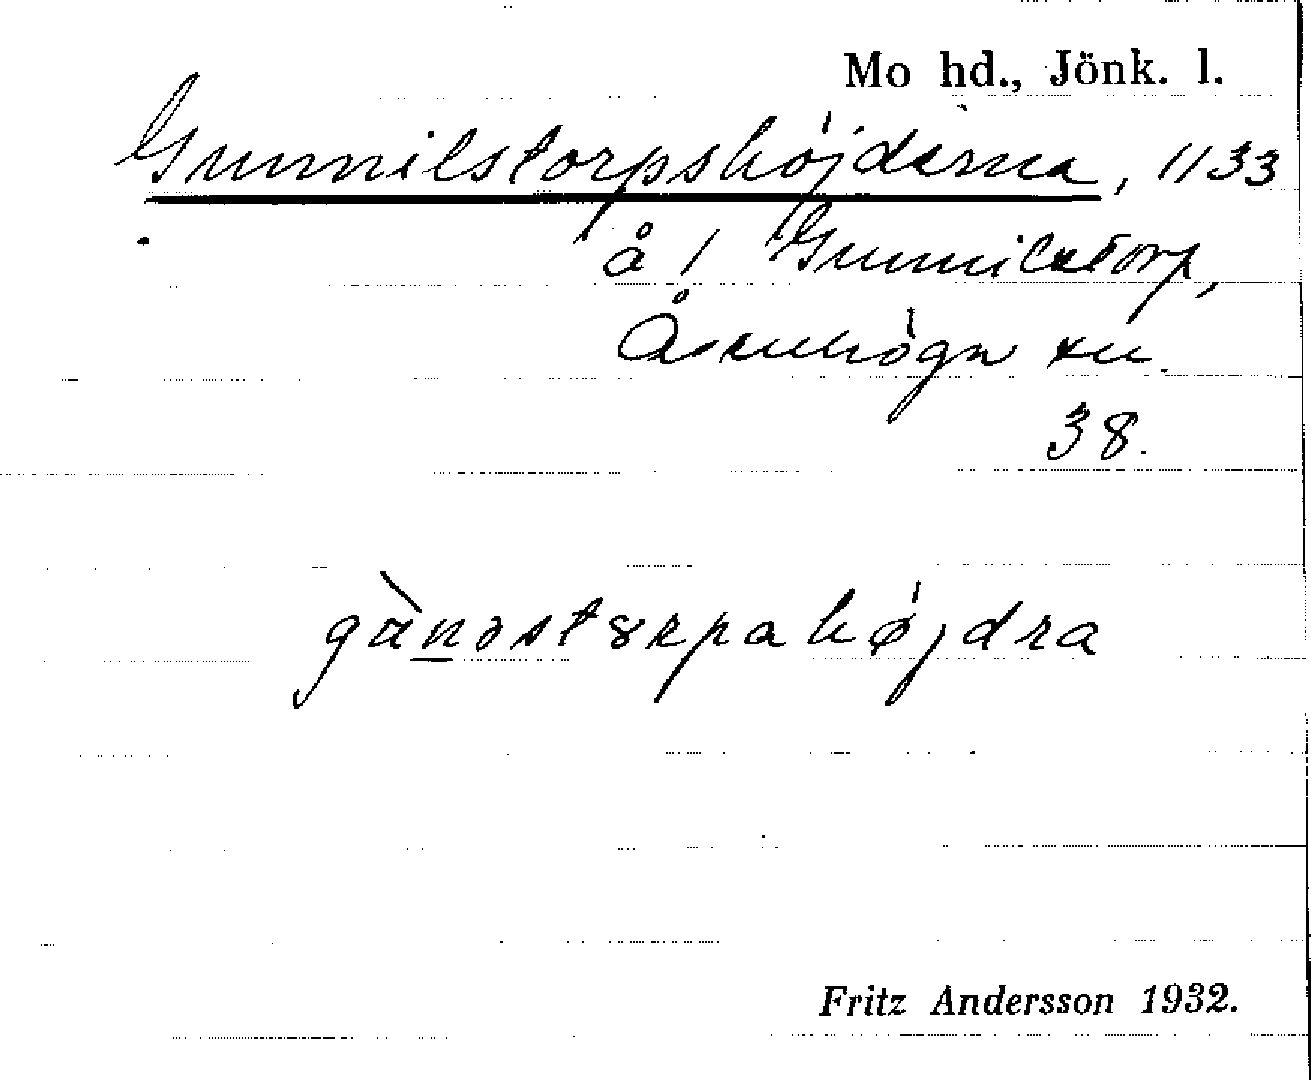 Mo hd., Jönk. l.
Gunnilstorpshöjderna, 1133
å 1 Gunnilstorp,
Åsenhöga sn.
38.
gànəstɤrpahøjdra
Fritz Andersson 1932.